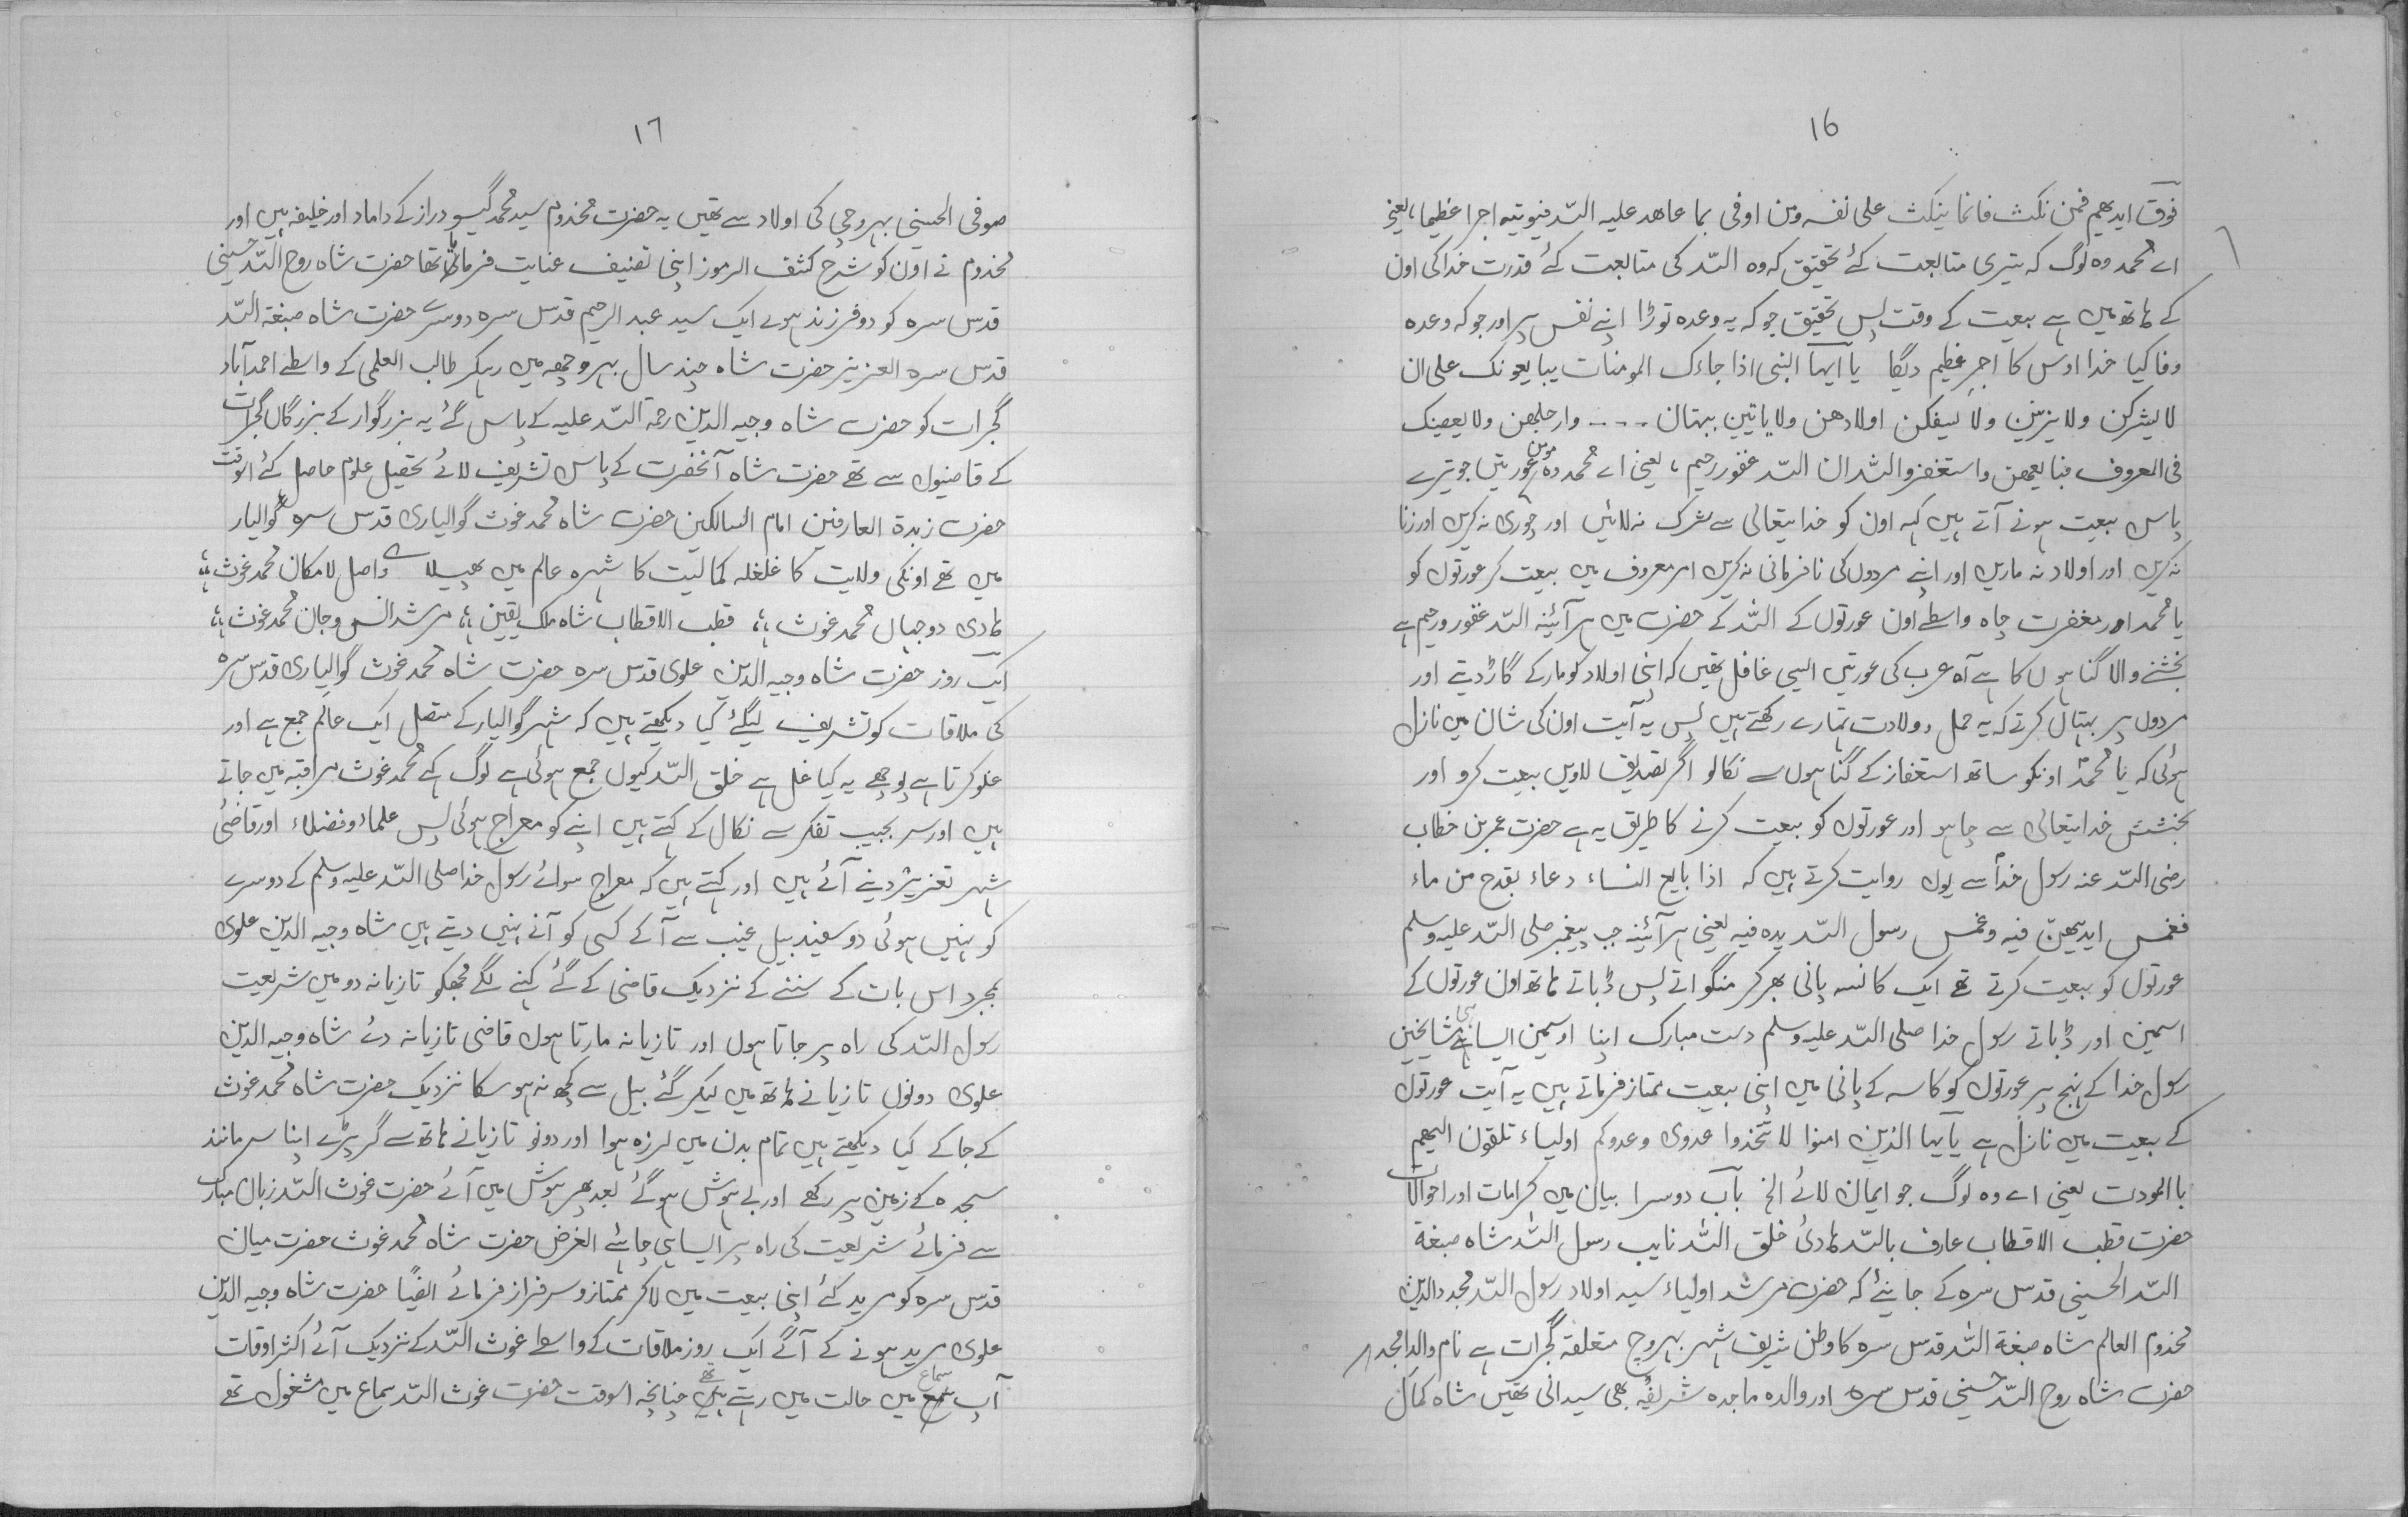 16
فوق ایدیھم فمن نکث فانما ینکث علی نفسہ ومن اوفی بما عاھد علیہ اللّٰہ فنیوتیہ اجرا عظیما، یعنی
اے محمد وہ لوگ کہ تیری متابعت کئے تحقیق کہ وہ اللّٰہ کی متابعت کئے قدرت خدا کی اون
کے ہاتھ میں ہے بیعت کے وقت پس تحقیق جو کہ یہ وعدہ توڑا اپنے نفس پر اور جو کہ وعدہ
وفا کیا خدا اوس کا اجرِ عظیم دیگا یا ایہا النبی اذا جاءک المومنات یبایعونک علی ان
لا یشرکن ولا یزنین ولا یفکن اولادھن ولا یاتین ببہتان ۔۔۔۔ وارجلھن ولا یعصینک
فی المعروف فبایعھن واستغفر واللّٰہ ان اللّٰہ غفور رحیم، یعنی اے محمد وہ مومن عورتیں جو تیرے
پاس بیعت ہونے آتے ہیں کہہ اون کو خدایتعالی سے شرک نہ لائیں اور چوری نہ کریں اور زنا
نہ کریں اور اولاد نہ ماریں اور اپنے مردوں کی نافرمانی نہ کریں امر معروف میں بیعت کر عورتوں کو
یا محمد اور مغفرت چاہ واسطے اون عورتوں کے اللّٰہ کے حضرت میں ہرآئینہ اللّٰہ غفور و رحیم ہے
بخشنے والا گناہوں کا ہے آہ عرب کی عورتیں ایسی غافل تھیں کہ اپنی اولاد کو مار کے گاڑ دیتے اور
مردوں پر بہتاں کرتے کہ یہ حمل و ولادت تمارے رکھتے ہیں پس یہ آیت اون کی شان میں نازل
ہوئی کہ یا محمدؐ اونکو ساتھ استغفار کے گناہوں سے نکالو اگر تصدیق لاویں بیعت کرو اور
بخشش خدایتعالی سے چاہو اور عورتوں کو بیعت کرنے کا طریق یہ ہے حضرت عمر بن خطاب
رضی اللّٰہ عنہ رسول خداؐ سے یوں روایت کرتے ہیں کہ اذا بایع النساء دعاء بقدح من ماء
فغمس ایدیھن فیہ وغمس رسول اللّٰہ یدہ فیہ یعنی ہرآئینہ جب پیغمبر صلی اللّٰہ علیہ وسلم
عورتوں کو بیعت کرتے تھے ایک کانسہ پانی بھر کر منگواتے پس ڈباتے ہاتھ اون عورتوں کے
اسمین اور ڈباتے رسول خدا صلی اللّٰہ علیہ وسلم دست مبارک اپنا اوسمین ایسا ہی مشایخین
رسول خدا کے نہج پر عورتوں کو کاسہ کے پانی میں اپنی بیعت ممتاز فرماتے ہیں یہ آیت عورتوں
کے بیعت میں نازل ہے یاایہا الذین امنوا لا تتخذوا عدوی وعدوکم اولیاء تلقون الیھم
باالمودت یعنی اے وہ لوگ جو ایمان لائے الخ باب دوسرا بیان میں کرامات اور احوالات
حضرت قطب الاقطاب عارف باللّٰہ ہادئ خلق اللّٰہ نایب رسول اللّٰہ شاہ صبغۃ
اللّٰہ الحسینی قدس سرہ کے جانئے کہ حضرت مرشد اولیاء سید اولاد رسول اللّٰہ مجدد الدین
مخدوم العالم شاہ صبغۃ اللّٰہ قدس سرہ کا وطن شریف شہر بہروچ متعلقہ گجرات ہے نام والد امجد
حضرت شاہ روح اللّٰہ حسینی قدس سرہ اور والدہ ماجدہ شریفہ بھی سیدانی تھیں شاہ کمال
۱۶
صوفی الحسینی بہروچی کی اولاد سے تھیں یہ حضرت مخدوم سید محمد گیسودراز کے داماد اور خلیفہ ہیں اور
مخدوم نے اون کو شرح کشف الرموز اپنی تصنیف عنایت فرمایا تھا حضرت شاہ روح اللّٰہ حسینی
قدس سرہ کو دو فرزند ہوے ایک سید عبد الرحیم قدس سرہ دوسرے حضرت شاہ صبغۃ اللّٰہ
قدس سرہ العزیز حضرت شاہ چند سال بہروچہ میں رہکر طالب العلمی کے واسطے احمدآباد
گجرات کو حضرت شاہ وجیہ الدین رحمۃ اللّٰہ علیہ کے پاس گئے یہ بزرگوار کے بزرگاں گجرات
کے قاضیوں سے تھے حضرت شاہ آنحضرت کے پاس تشریف لائے تحصیل علوم حاصل کئے اوقت
حضرت زبدۃ العارفین امام السالکین حضرت شاہ محمد غوث گوالیاری قدس سرہ گوالیار
میں تھے اونکی ولایت کا غلغلہ کمالیت کا شہرہ عالم میں پھیلا ے واصل لامکان محمد غوث؛؛
ہادی دوجہاں محمد غوث؛؛ قطب الاقطاب شاہ ملک یقین؛؛ مرشد انس وجان محمد غوث؛؛
ایک روز حضرت شاہ وجیہ الدین علوی قدس سرہ حضرت شاہ محمد غوث گوالیاری قدس سرہ
کی ملاقات کو تشریف لیگئے کیا دیکھتے ہیں کہ شہر گوالیار کے متصل ایک عالم جمع ہے اور
غلو کرتا ہے پوچھے یہ کیا غل ہے خلق اللّٰہ کیوں جمع ہوئی ہے لوگ کہے محمد غوث مراقبہ میں جاتے
ہیں اور سر بجیب تفکر سے نکال کے کہتے ہیں اپنے کو معراج ہوئی پس علماء و فضلاء اور قاضیٔ
شہر تعزیر دینے آئے ہیں اور کہتے ہیں کہ معراج سوائے رسول خدا صلی اللّٰہ علیہ وسلم کے دوسرے
کو نہیں ہوئی دو سفید بیل غیب سے آ کے کسی کو آنے نہیں دیتے ہیں شاہ وجیہ الدین علوی
بمجرد اس بات کے سننے کے نزدیک قاضی کے گئے کہنے لگے مجھکو تازیانہ دو میں شریعت
رسول اللّٰہ کی راہ پر جاتا ہوں اور تازیانہ مارتا ہوں قاضی تازیانہ دئے شاہ وجیہ الدین
علوی دونوں تازیانے ہاتھ میں لیکر گئے بیل سے کچھ نہ ہو سکا نزدیک حضرت شاہ محمد غوث
کے جا کے کیا دیکھتے ہیں تمام بدن میں لرزہ ہوا اور دونو تازیانے ہاتھ سے گر پڑے اپنا سر مانند
سجدہ کے زمین پر رکھے اور بے ہوش ہوگئے بعد پھر ہوش میں آئے حضرت غوث اللّٰہ زبان مبارک
سے فرمائے شریعت کی راہ پر ایسا ہی چاہئے الغرض حضرت شاہ محمد غوث حضرت میان
قدس سرہ کو مرید کئے اپنی بیعت میں لاکر ممتاز و سرفراز فرمائے ایضًا حضرت شاہ وجیہ الدین
علوی مرید ہونے کے آگے ایک روز ملاقات کے واسطے غوث اللّٰہ کے نزدیک آئے اکثر اوقات
آپ سماع میں حالت میں رہتے تھے چنانچہ اسوقت حضرت غوث اللّٰہ سماع میں مشغول تھے